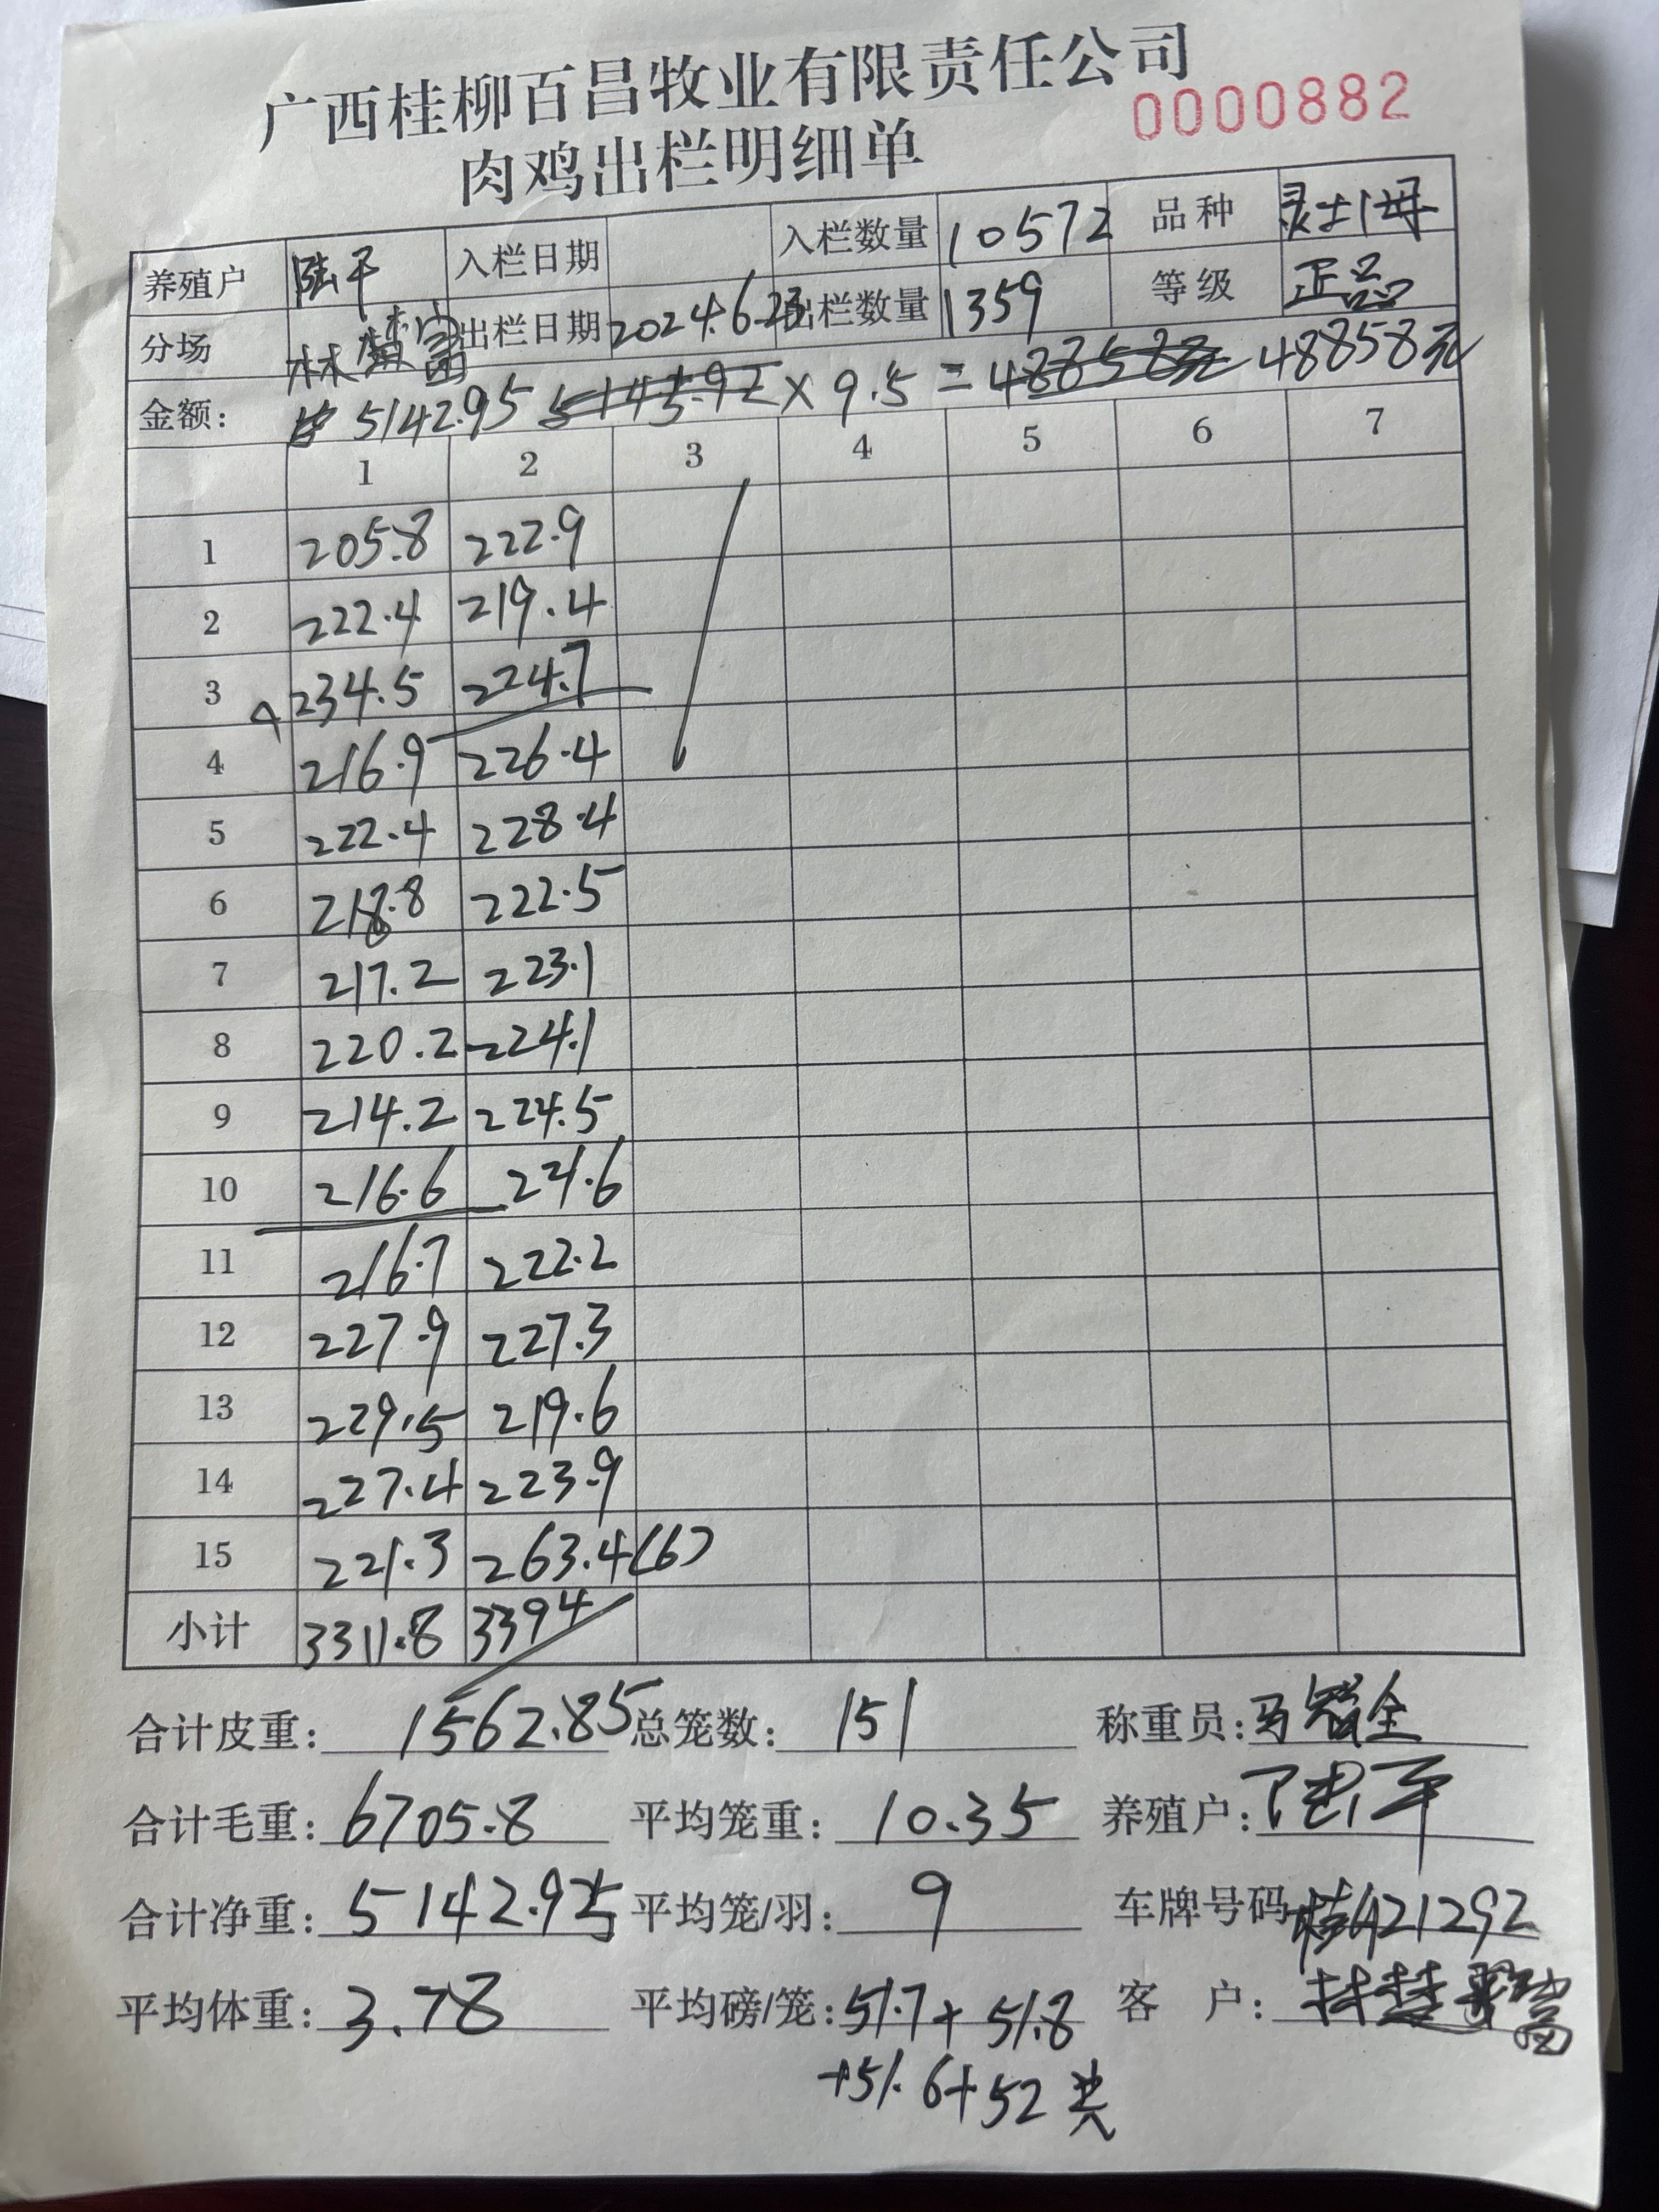 广西桂柳百昌牧业有限责任公司
0000882
肉鸡出栏明细单
养殖户 陆平 入栏日期 入栏数量 10572 品种
分场 出栏日期 2024.6.23 出栏数量 1359 等级 正品
金额: 5142.95 5145.92 × 9.5 = 48858元 48858元
1 2 3 4 5 6 7
1 205.8 222.9
2 222.4 219.4
3 234.5 224.7
4 216.9 226.4
5 222.4 228.4
6 218.8 222.5
7 217.2 223.1
8 220.2 224.1
9 214.2 224.5
10 216.6 221.6
11 216.7 222.2
12 227.9 227.3
13 229.5 219.6
14 227.4 223.9
15 221.3 263.4(6)
小计 3311.8 3394
合计皮重: 1562.85 总笼数: 151 称重员: 马智全
合计毛重: 6705.8 平均笼重: 10.35 养殖户: 陆平
合计净重: 5142.95 平均笼/羽: 9 车牌号码 桂A21292
平均体重: 3.78 平均磅/笼: 51.7+51.8 客户:
+51.6+52 共